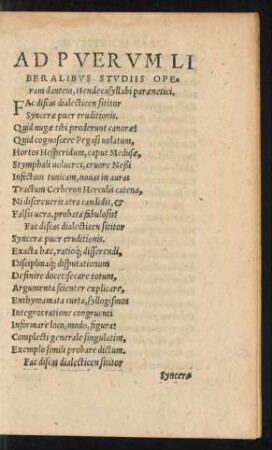 AD PVERVM LI
BERALIBVS STVDIIS OPE-
ram dantem, Hendecasyllabi parænetici.
FAc discas dialecticen sititor
Synceræ puer eruditionis.
Quid nugæ tibi proderunt canoræ?
Quid cognoscere Pegasi uolatum,
Hortos Hesperidum, caput Medusæ,
Stymphali uolucres, cruore Nessi
Infectam tunicam, nouat in auras
Tractum Cerberon Herculis catena,
Ni discreuerit atra candidis, &
Falsis uera, probata fabulosis?
Fac discas dialecticen sititor
Synceræ puer eruditionis.
Exacta hæc, ratioq; disserendi,
Disciplinaq; disputationum
Definire docet: secare totum,
Argumenta scienter explicare,
Enthymamata curta, syllogismos
Integros ratione congruenti
Infirmare loco, modo, figura:
Complecti generale singulatim,
Exemplo simili probare dictum.
Fac discas dialecticen sititor
Synceræ